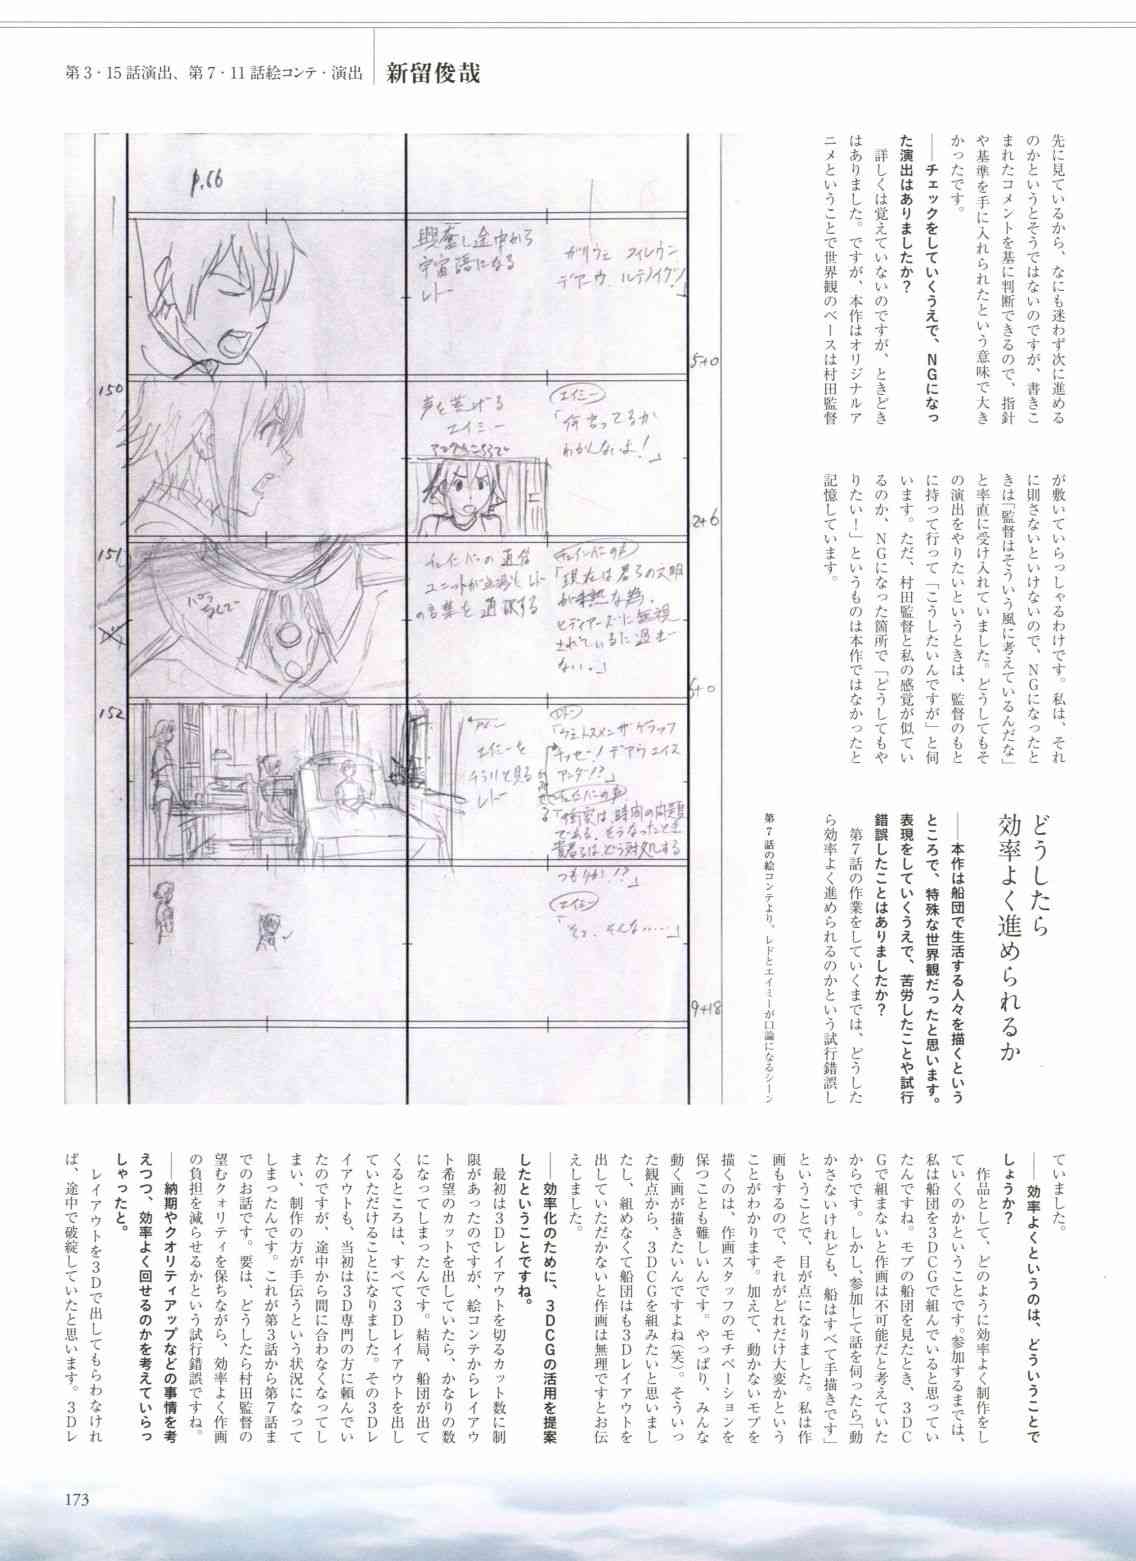 第3・15話演出、第7・11話絵コンテ・演出
新留俊哉
先に見ているから、なにも迷わず次に進める
のかというとそうではないのですが、書きこ
まれたコメントを基に判断できるので、指針
や基準を手に入れられたという意味で大き
かったです。
──チェックをしていくうえで、NGになっ
た演出はありましたか?
詳しくは覚えていないのですが、ときどき
はありました。ですが、本作はオリジナルア
ニメということで世界観のベースは村田監督
が敷いていらっしゃるわけです。私は、それ
に則さないといけないので、NGになったと
きは「監督はそういう風に考えているんだな」
と率直に受け入れていました。どうしてもそ
の演出をやりたいというときは、監督のもと
に持って行って「こうしたいんですが」と伺
います。ただ、村田監督と私の感覚が似てい
るのか、NGになった箇所で「どうしてもや
りたい!」というものは本作ではなかったと
記憶しています。
どうしたら
効率よく進められるか
──本作は船団で生活する人々を描くという
ところで、特殊な世界観だったと思います。
表現をしていくうえで、苦労したことや試行
錯誤したことはありましたか?
第7話の作業をしていくまでは、どうした
ら効率よく進められるのかという試行錯誤し
第7話の絵コンテより。レドとエイミーが口論になるシーン
p.66
興奮し途中から
宇宙語になる
レドー
ガリウェ
5+0
150
声を荒げる
エイミー
エイミー
「何言ってるか
わかんないよ!」
2+6
151
チェインバーの通信
ユニットが点滅し、レド
の言葉を通訳する
チェインバーの声
「現在は君らの文明
が未熟な為、
ヒディアーズに無視
されているに過ぎ
ない。」
5+0
152
エイミーを
チラリと見る
レドー
レド
チェインバーの声
「衝突は時間の問題
である。そうなったとき
貴君らは、どう対処する
つもりか!?」
エイミー
「そっ、そんな……」
9+18
ていました。
──効率よくというのは、どういうことで
しょうか?
作品として、どのように効率よく制作をし
ていくのかということです。参加するまでは、
私は船団を3DCGで組んでいると思ってい
たんですね。モブの船団を見たとき、3DC
Gで組まないと作画は不可能だと考えていた
からです。しかし、参加して話を伺ったら「動
かさないけれども、船はすべて手描きです」
ということで、目が点になりました。私は作
画もするので、それがどれだけ大変かという
ことがわかります。加えて、動かないモブを
描くのは、作画スタッフのモチベーションを
保つことも難しいんです。やっぱり、みんな
動く画が描きたいんですよね(笑)。そういっ
た観点から、3DCGを組みたいと思いまし
たし、組めなくて船団はも3Dレイアウトを
出していただかないと作画は無理ですとお伝
えしました。
──効率化のために、3DCGの活用を提案
したということですね。
最初は3Dレイアウトを切るカット数に制
限があったのですが、絵コンテからレイアウ
ト希望のカットを出していたら、かなりの数
になってしまったんです。結局、船団が出て
くるところは、すべて3Dレイアウトを出し
ていただけることになりました。その3Dレ
イアウトも、当初は3D専門の方に頼んでい
たのですが、途中から間に合わなくなってし
まい、制作の方が手伝うという状況になって
しまったんです。これが第3話から第7話ま
でのお話です。要は、どうしたら村田監督の
望むクオリティを保ちながら、効率よく作画
の負担を減らせるかという試行錯誤ですね。
──納期やクオリティアップなどの事情を考
えつつ、効率よく回せるのかを考えていらっ
しゃったと。
レイアウトを3Dで出してもらわなけれ
ば、途中で破綻していたと思います。3Dレ
173